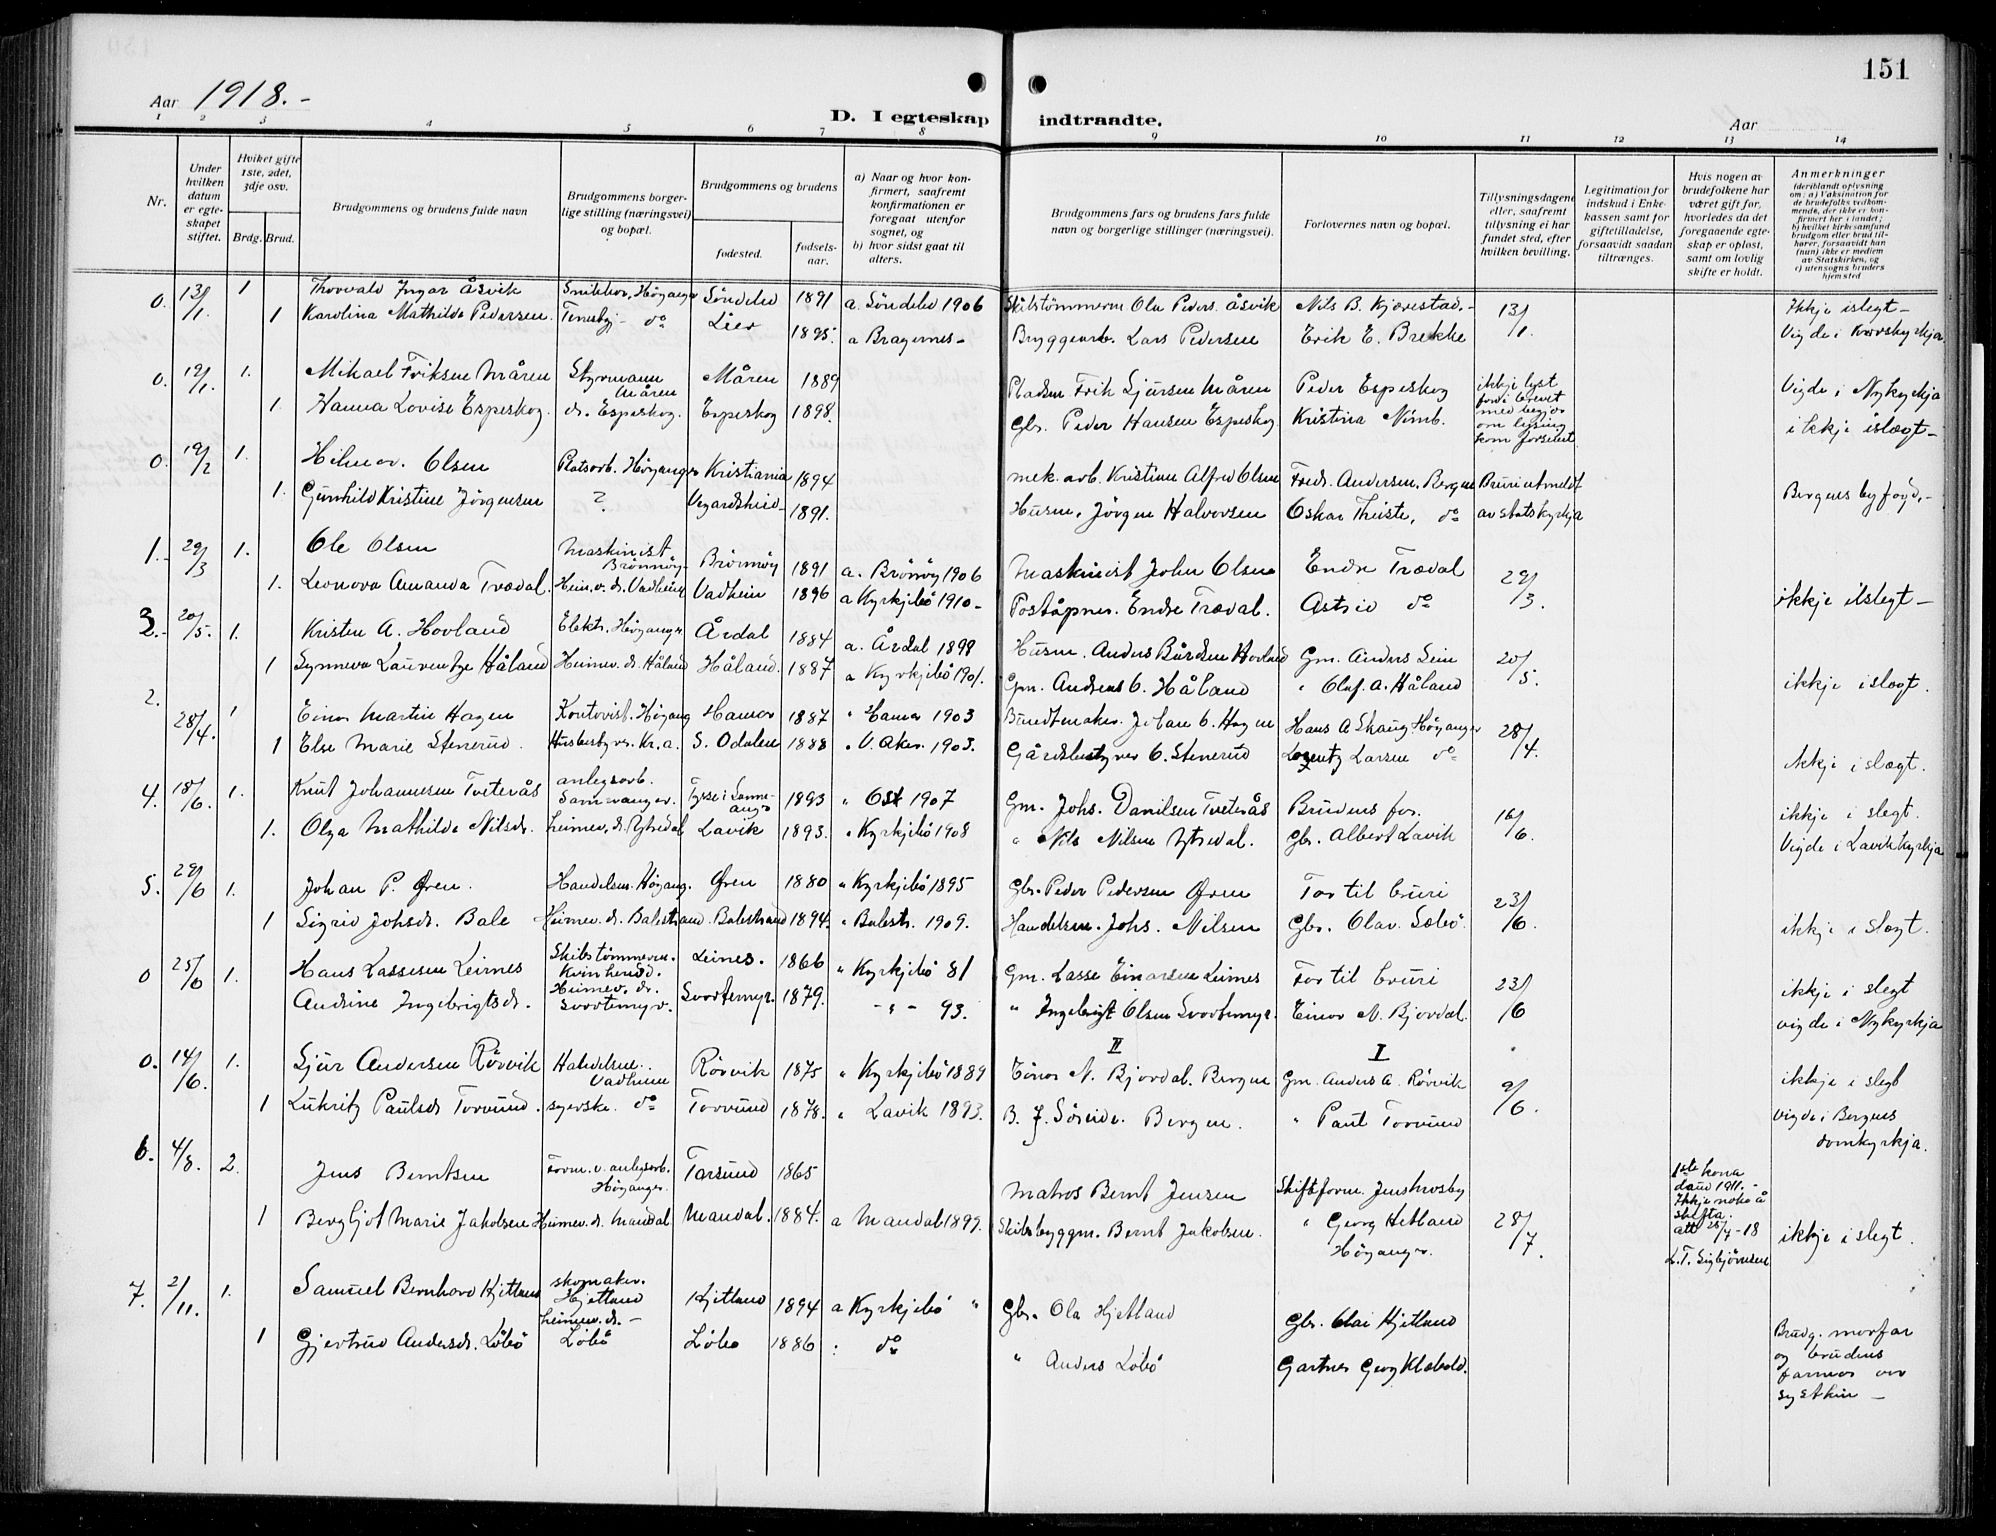 151
Aar 1918.-
D. I egteskap indtraadte.
Aar
1 2 3 4 5 6 7 8 9 10 11 12 13 14
Nr.
Under hvilken datum er egteskapet stiftet.
Hvilket gifte 1ste, 2det, 3dje osv.
Brdg. Brud.
Brudgommens og brudens fulde navn
Brudgommens borgerlige stilling (næringsvei) og bopæl.
Brudgommens og brudens
fødested. fødselsaar.
a) Naar og hvor konfirmert, saafremt konfirmationen er foregaat utenfor sognet, og
b) hvor sidst gaat til alters.
Brudgommens fars og brudens fars fulde navn og borgerlige stillinger (næringsvei).
Forlovernes navn og bopæl.
Tillysningsdagene eller, saafremt tillysning ei har fundet sted, efter hvilken bevilling.
Legitimation for indskud i Enkekassen samt for giftetilladelse, forsaavidt saadan tiltrænges.
Hvis nogen av brudefolkene har været gift før, hvorledes da det foregaaende egteskap er opløst, samt om lovlig skifte er holdt.
Anmerkninger (deriblandt oplysning om: a) Vaksination for de brudefolks vedkommende, der ikke er konfirmert her i landet; b) hvilket kirkesamfund brudgom eller brud tilhører, forsaavidt han (hun) ikke er medlem av Statskirken, og c) utensogns bruders hjemsted
0. 13/1. 1 Thorvald Ingar Åsvik Snikkar, Høyanger Søndeled 1891 a. Søndeled 1906 Skibstømmerm Ole Peders. Åsvik Nils B. Kjærestad.- 13/1. Ikkje islegt-
1 Karolina Mathilde Pedersen. Tenestpj- do Lier 1895. a Bragernes- Bryggearb. Lars Pedersen Erik E. Brekke Vigde i Krosskyrkja
0. 12/1. 1. Mikael Eriksen Måren Styrmann Måren Måren 1889 Pladsm Erik Sjursen Måren Peder Espeskog ikkje lyst fordi brevet med begjær om lysing kom forseint Vigde i Nykyrkja
1. Hanna Lovise Espeskog. d. Espeskog. Espeskog 1898. Gbr. Peder Hansen Espeskog Kristina Nimb. ikkje islægt-
0. 19/2 1. Hilmar. Olsen Platsarb. Høyanger Kristiania 1894 mek. arb. Kristian Alfred Olsen Fredr. Andersen, Bergen Bruri utmeldt av statskyrkja
1. Gunhild Kristine Jörgensen ? Vegardsheid- 1891. Husm. Jörgen Halvorsen Oskar Theiste, do Bergens byfogd.-
1. 29/3 1. Ole Olsen Maskinist Brönnöy- Brönnöy 1891 a. Brönöy 1906 Maskinist John Olsen Endre Trædal 29/3.
1. Leonora Amanda Trædal. Heim.v. d. Vadheim Vadheim 1896 a Kyrkjebö 1910- Postöpner. Endre Trædal. Astrid do ikkje islegt-
3. 20/5. 1. Kristen A. Hovland Elektr. Höyanger. Årdal 1884 a. Årdal 1898 Husm. Anders Bårdsen Hovland Gm. Anders Leim 20/5.
1 Synneva Laurentze Håland Heimev. d. Håland Håland. 1887 a Kyrkjebö 1901. Gm. Andreas O. Håland " Oluf. A. Håland ikkje islægt.
2. 28/4. 1 Einar Martin Hagen Kontorist. Höyang Hamar 1887 " Hamar 1903 Bundtmaker. Johan O. Hagen Hans A Skaug Höyanger 28/4.
1 Else Marie Stenerud. Husbestyrer. Kr.a. S. Odalen 1888 " V. Aker. 1903. Gårdsbestyrer O. Stenerud Lorentz Larsen do ikkje i slægt.
4. 18/6. 1. Knut Johannesen Tveterås anlegsarb. Samnanger. Tysse i Samnanger 1893 " Ost 1907 Gm. Johs. Danilsen Tveterås Brudens far. 16/6. ikkje i slegt.
1. Olga Mathilde Nilsdr. heimev. d. Ytredal Lavik 1893. " Kyrkjebö 1908 " Nils Nilsen Ytredal. Gbr. Albert Lavik Vigde i Lavikkyrkja
5. 29/6 1. Johan P. Øren. Handelsm. Höyang. Øren 1880 " Kyrkjebö 1895 Gbr. Peder Pedersen Øren Far til bruri 23/6.
1 Sigrid Johsdr. Bale Heimev. d. Balestrand Balestrand 1894. " Balestr. 1909. Handelsm. Johs. Nilsen Gbr. Olav. Sæbö. ikkje i slægt.
0 25/6 1. Hans Lassesen Leirnes Skibstømmerm. Kvinherad. Leines. 1866 " Kyrkjebö 81 Gm. Lasse Einarsen Leirnes Far til bruri 23/6 ikkje i slegt
Andrine Ingebrigtsdr. Heimev. dr. Svortemyr. Svortemyr. 1879. -"- 93. " Ingebrigt Olsen Svortemyr. Einar N. Bjordal. vigde i Nykyrkja
II I
0. 14/6. 1. Sjur Andersen Rörvik Handelsm. Vadheim Rörvik 1875 " Kyrkjebö 1889 Einar N. Bjordal. Bergen Gm. Anders A. Rörvik 9/6. ikkje i slegt
1 Lukritz Paulsdr Torvund. syerske. do Torvund 1878. " Lavik 1893. B. J. Söreide. Bergen. " Paul Torvund Vigde i Bergens domkyrkja.
6. 4/8. 2. Jens Berntsen Form. v. anlegsarb. Höyanger. Farsund 1865 Matros Bernt Jensen Skiftform. Jens Mosby 1ste kona daud 1911.- Ikkje noko å skifta. att 25/7-18
1 Bergljot Marie Jakobsen Heimev. d. Mandal Mandal. 1884. a Mandal 1899. Skibsbyggm. Bernt Jakobsen. " Georg Hetland Höyanger. 28/7. L.T. Sigbjörnsen ikkje i slegt.
7. 2/11. 1. Samuel Bernhard Hjetland skomaker. Hjetland Hjetland 1894 a Kyrkjebö " Gbr. Ola Hjetland Gbr. Olai Hjetland
1 Gjertrud Andersdr. Löbö heimev. d. - Löbö Löbö 1886 : do " Anders Löbö Gartner Georg Klebold. Brudg. morfar og brudens farmor var systkin -